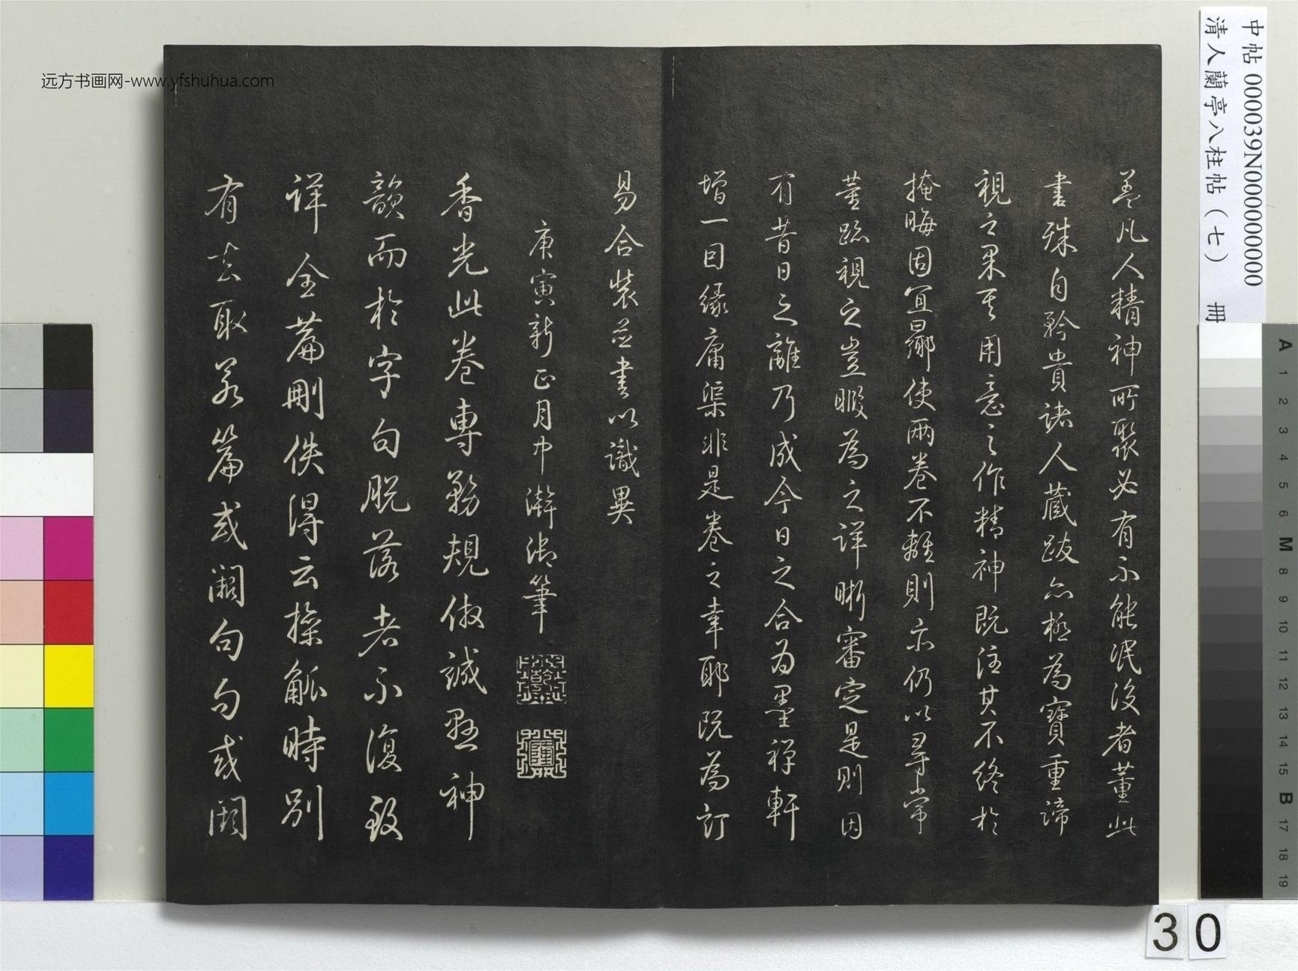 盖凡人精神所聚必有不能泯没者董此
書殊自矜貴諸人藏跋亦極為寶重諦
視之果其用意之作精神既注其不終於
掩晦固宜曏使兩卷不離則亦仍以尋常
董跡視之豈暇為之詳晰審定是則因
有昔日之離乃成今日之合為墨禪軒
增一因緣庸渠非是卷之幸耶既為訂
易合裝並書以識異
庚寅新正月中澣御筆
香光此卷專務規倣誠懸神
韻而於字句脱落者不復致
詳全篇刪佚得云操觚時别
有去取若篇或闕句句或闕
中帖 000039N000000000
清人蘭亭八柱帖（七） 冊
远方书画网-www.yfshuhua.com
A
1
2
3
4
5
6
M
8
9
10
11
12
13
14
15
B
17
18
19
30